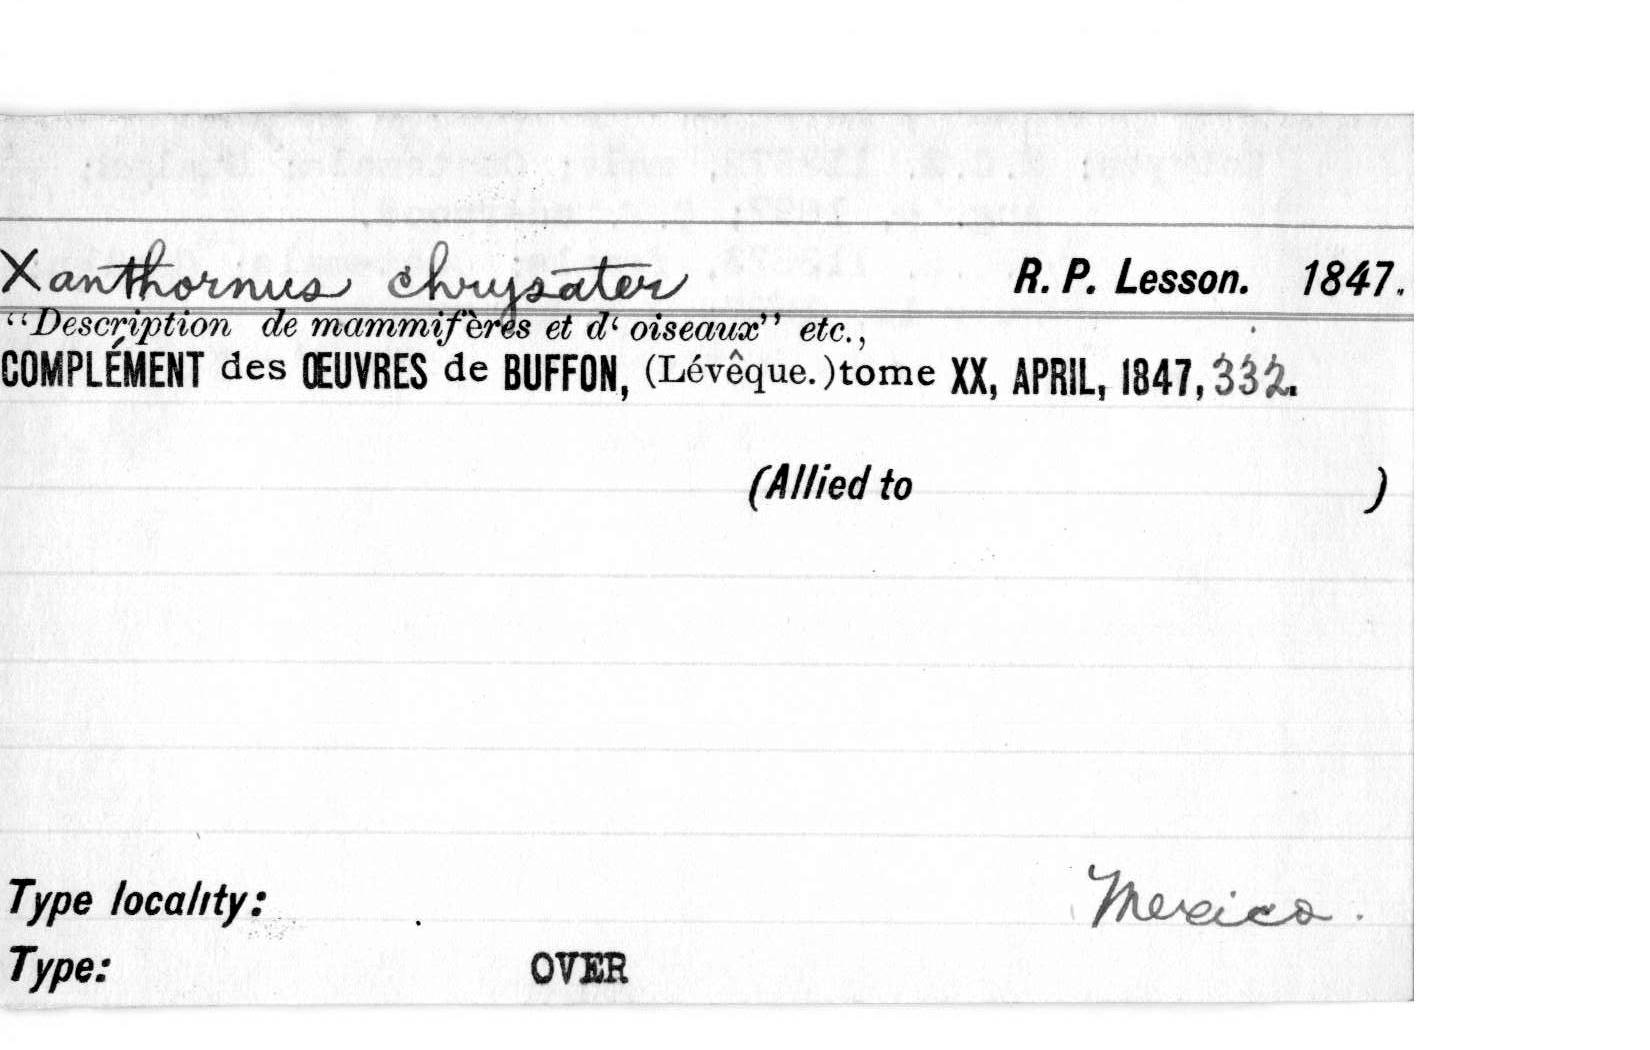 Xanthornus chrysater R. P. Lesson. 1847.
“Description de mammifères et d‘ oiseaux” etc.,
COMPLÉMENT des ŒUVRES de BUFFON, (Lévêque.) tome XX, APRIL, 1847, 332.
(Allied to )
Type locality: Mexico.
Type: OVER